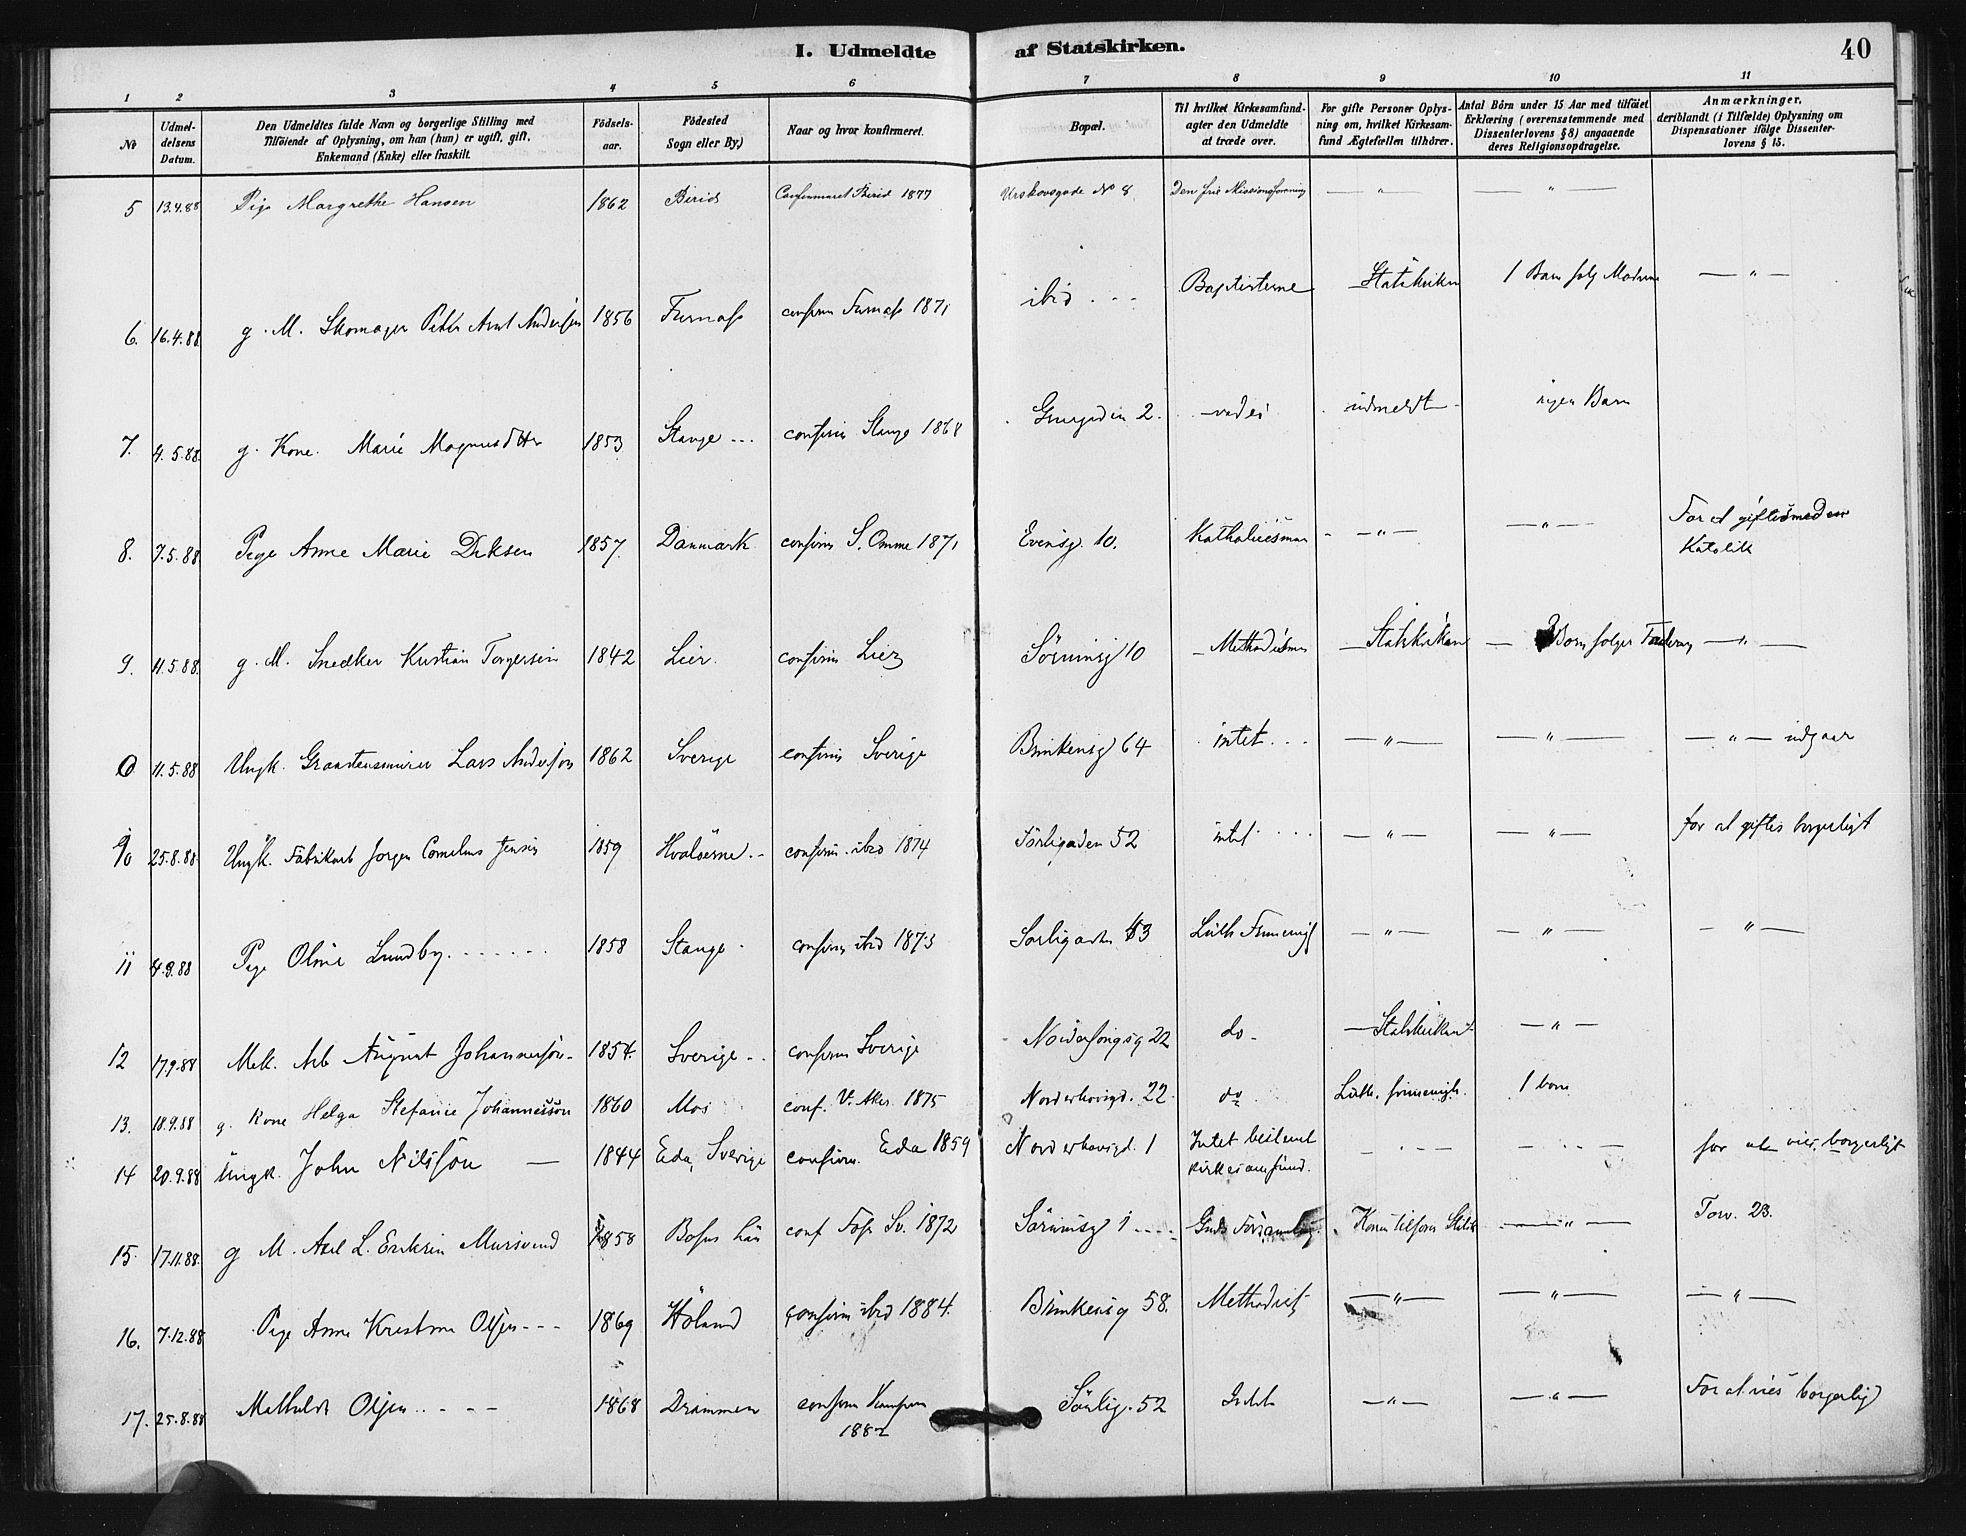 I. Udmeldte af Statskirken. 40
1 2 3 4 5 6 7 8 9 10 11
No
Udmeldelsens Datum.
Den Udmeldtes fulde Navn og borgerlige Stilling med Tilföiende af Oplysning, om han (hun) er ugift, gift, Enkemand (Enke) eller fraskilt.
Födselsaar.
Födested Sogn eller By.)
Naar og hvor konfirmeret.
Bopæl.
Til hvilket Kirkesamfund agter den Udmeldte at træde over.
For gifte Personer Oplysning om, hvilket Kirkesamfund Ægtefællen tilhörer.
Antal Börn under 15 Aar med tilföiet Erklæring (overensstemmende med Dissenterlovens § 8) angaaende deres Religionsopdragelse.
Anmærkninger, deriblandt (i Tilfælde) Oplysning om Dispensationer ifölge Dissenterlovens § 15.
5 13.4.88 Pige Margrethe Hansen 1862 Birid Confirmeret Birid 1877 Urskovsgade No 8 Den frie Missionsforening — " — — " —
6. 16.4.88 g. M. Skomager Peter Arnt Andersen 1856 Furnæs confirm Furnæs 1871 ibid - - - Baptisterne Statskirken 1 Barn følg Moderen — " —
7. 4.5.88. g. Kone. Marie Magnusdtter 1853 Stange - - - confirm Stange 1868 2. udmeldt ingen Barn
8. 7.5.88 Pige Anne Marie 1857. Danmark confirm S. Omme 1871 Evensg. 10. — " — — " — For at giftes med en Katolik
9. 11.5.88. g. M. Snedker Kristian Torgersen 1842 Lier. confirm Lier 10 Statskirken Born følger Faderen — " —
11.5.88 Ungk. Lars Andersson 1862 Sverige confirm Sverige 64 intet - - - — " — — " — — " — udgaar
25.8.88 Ungk. Fabrikant Jørgen Cornelius Jensen 1859 Hvaløerne - - confirm. ibid 1874 Sørligaden 52 intet - - - - — " — — " — for at giftes borgerligt
11 4.9.88 Pige Oline Lundby - - - - - - 1858 Stange - confirm ibid 1873 Sørligaden 53 Luth — " — — " — — " —
12 17.9.88 Mek. Arb August Johannesson - 1854. Sverige - - confirm Sverige 22 do - Statskirken — " —
13. 18.9.88 g. Kone Helga Stefanie Johannesson 1860 Mos conf. V. Aker. 1875 Norderhovsgd. 22. do Luth. frimenigh. 1 barn
14 20.9.88 Ungk. John Nilsson — 1844 Eda, Sverige confirm. Eda 1859 Norderhovsgd. 1 Intet bestemt kirkesamfund. for at vies borgerligt
15. 17.11.88. g M. Axel L. 1858 Bohus Län conf Foss Sv. 1872 1 - - - - Guds — " — Torv. 23.
16. 7.12.88 Pige Anne Kristine Olsen - - - 1869 Höland confirm ibid 1884. 58. Methodist — " — — " — — " —
17. 25.8.88 Mathilde Olsen - - - - 1868 Drammen confirm 1882 Sørlig. 52 — " — — " — For at vies borgerlig